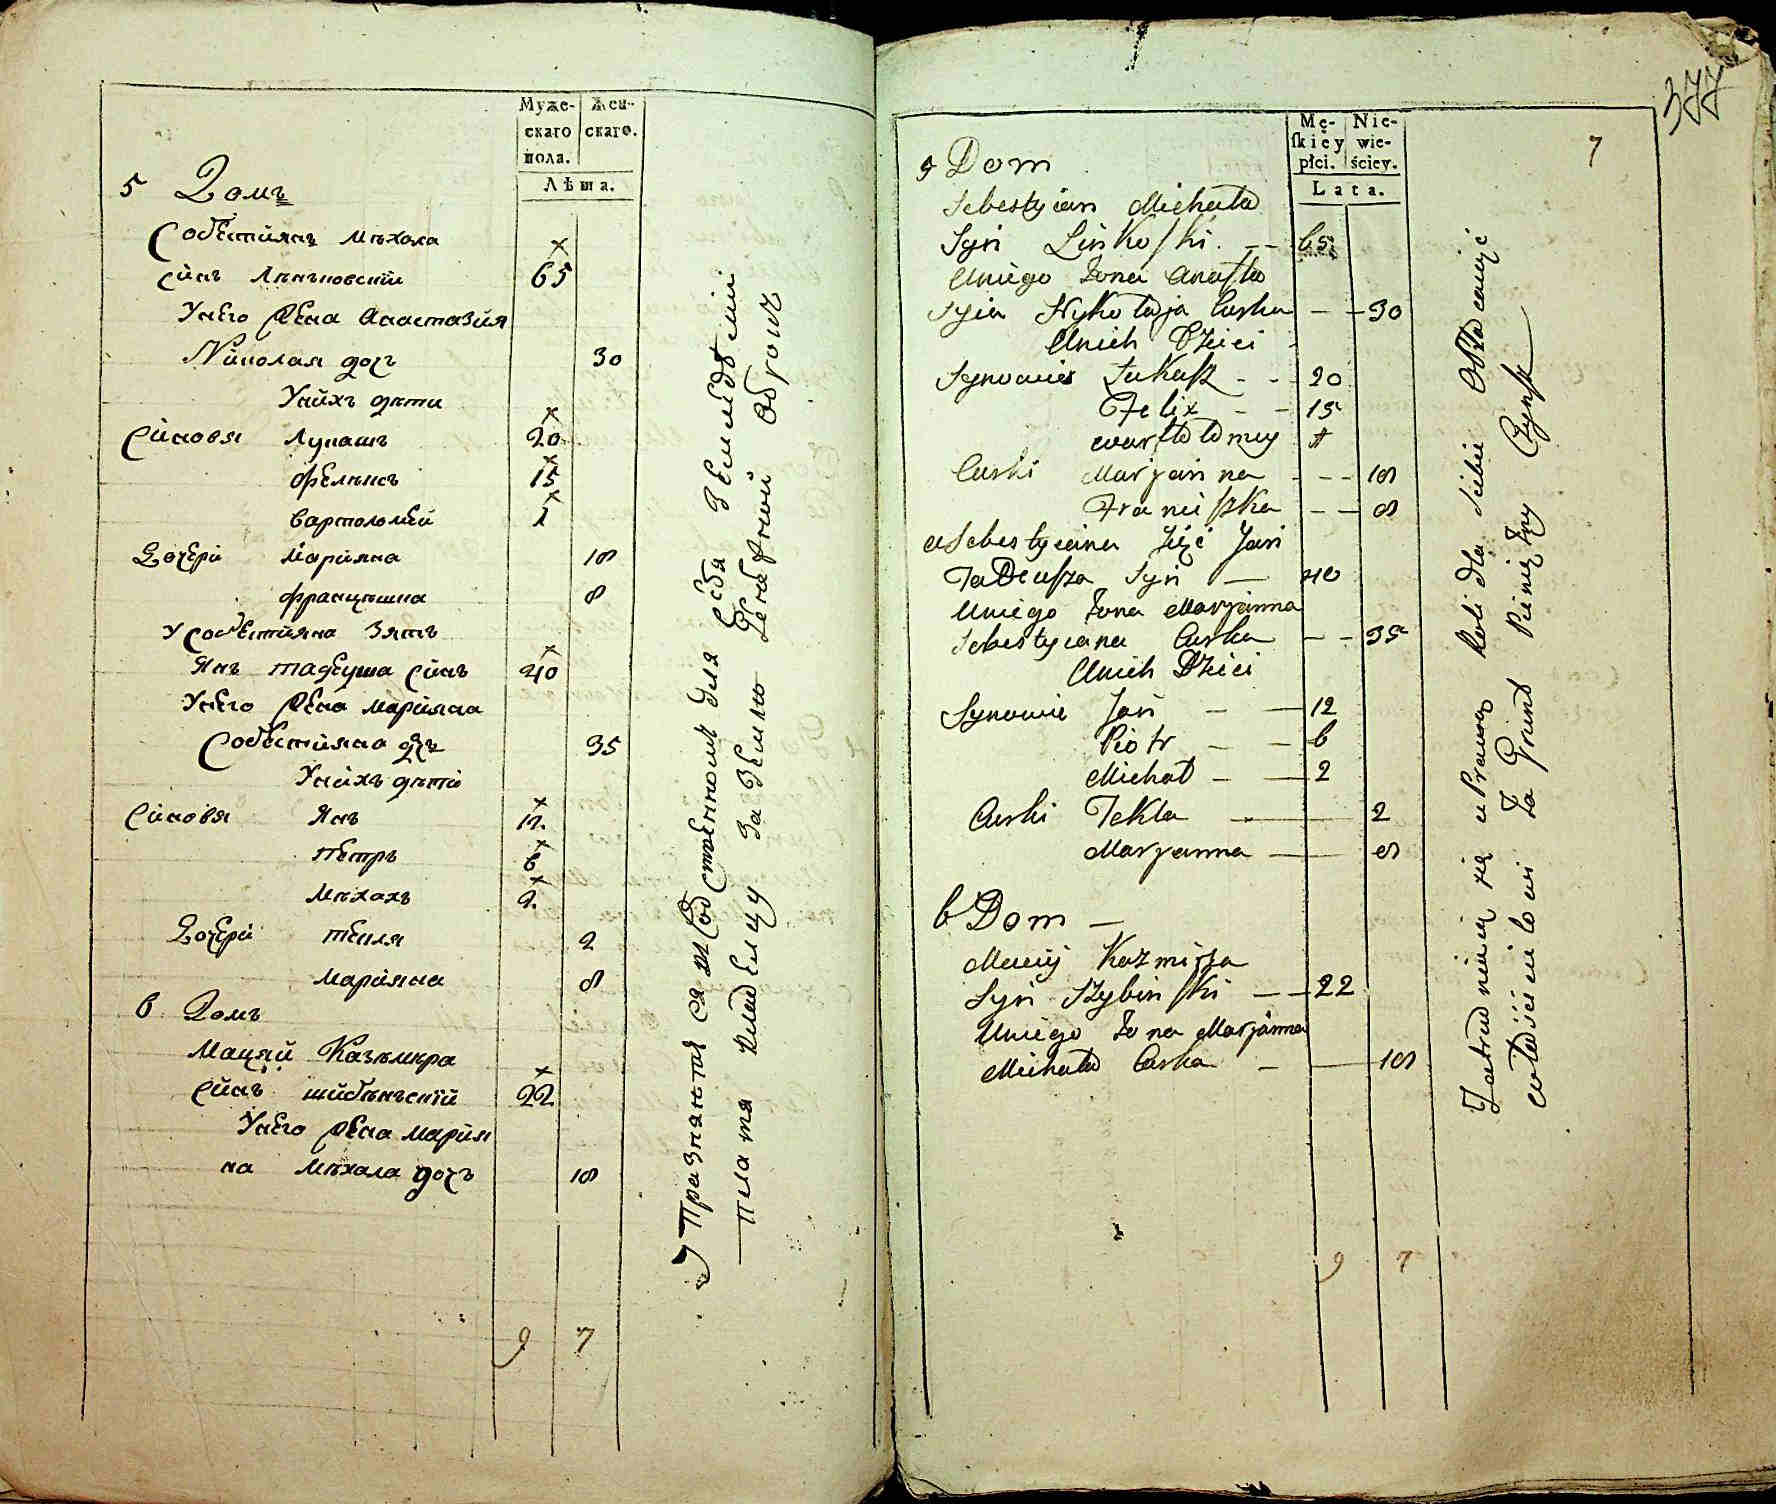 Муже-
скаго
пола.
Жен-
скаго.
Лѣта.
5 Домъ
Собестиянъ Михала
синъ Линьковский 65
Унего жена Анастазия
Николая дочь 30
Унихъ дети
Синовя Лукашъ 20
Феликсъ 15
Вартоломей 1
Дочери Марияна 18
Францишка 8
У Собестияна Зять
Янъ тадеуша синъ 40
Унего жена Марияна
Собестияна дочь 35
Унихъ дети
Синовя Янъ 12
Петръ 6
Михалъ 2
Дочери текля 2
Марияна 8
6 Домъ
Мацей Казимира
синъ шибинский 22
Унего жена Мария
на Михала дочь 18
9 7
Упразняются Собственномъ для себя земледелии
платя владелцу за землю денежной оброкъ
377
7
Mę-
skiey
płci.
Nie-
wie-
ściey.
Lata.
5 Dom
Sebestyian Michała
Syn Linkoski. 65
Uniego Zona Anasta
Syia Nykołaja Curka 30
Unich Dzieci
Synowie Łukasz 20
Felix 15
Wartołomiy 1
Curki Marjanna 18
Franiszka 8
U Sebestyiana Zięć Jan
Tadeusza Syn 40
Uniego Zona Marjanna
Sebestyiana Curka 35
Unich Dzieci
Synowie Jan 12
Piotr 6
Michał 2
Curki Tekla 2
Marjanna 8
6 Dom
Maciy Kazmirza
Syn Szybinski 22
Uniego Zona Marjanna
Michała Curka 18
9 7
Zatrudniaią się uPrawą Roli dla siebie Opłacaiąc
Właścicielowi Za Grunt Pieniężny Czynsz